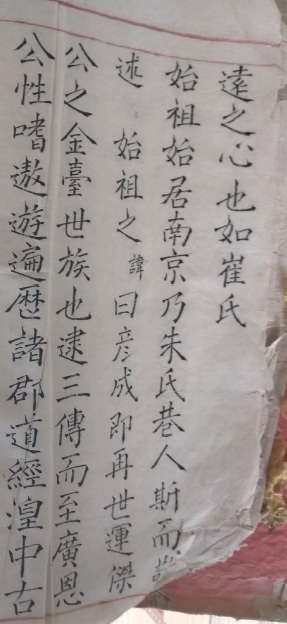 遠之心也如崔氏
始祖始居南京乃朱氏巷人斯而
述 始祖之諱曰彦成即再世運傑
公之金臺世族也逮三傳而至廣恩
公性嗜遨遊遍歷諸郡道經湟中古